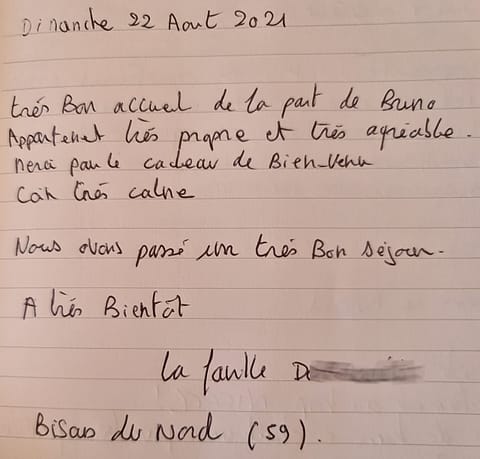 Dimanche 22 Aout 2021
très Bon accueil de la part de Bruno
Appartenat très propre et très agréable.
Merci pour le cadeau de Bien-Venu
Coin très calme
Nous avons passé un très Bon séjour.
A très Bientôt
La famille D
Bisous du Nord (59).